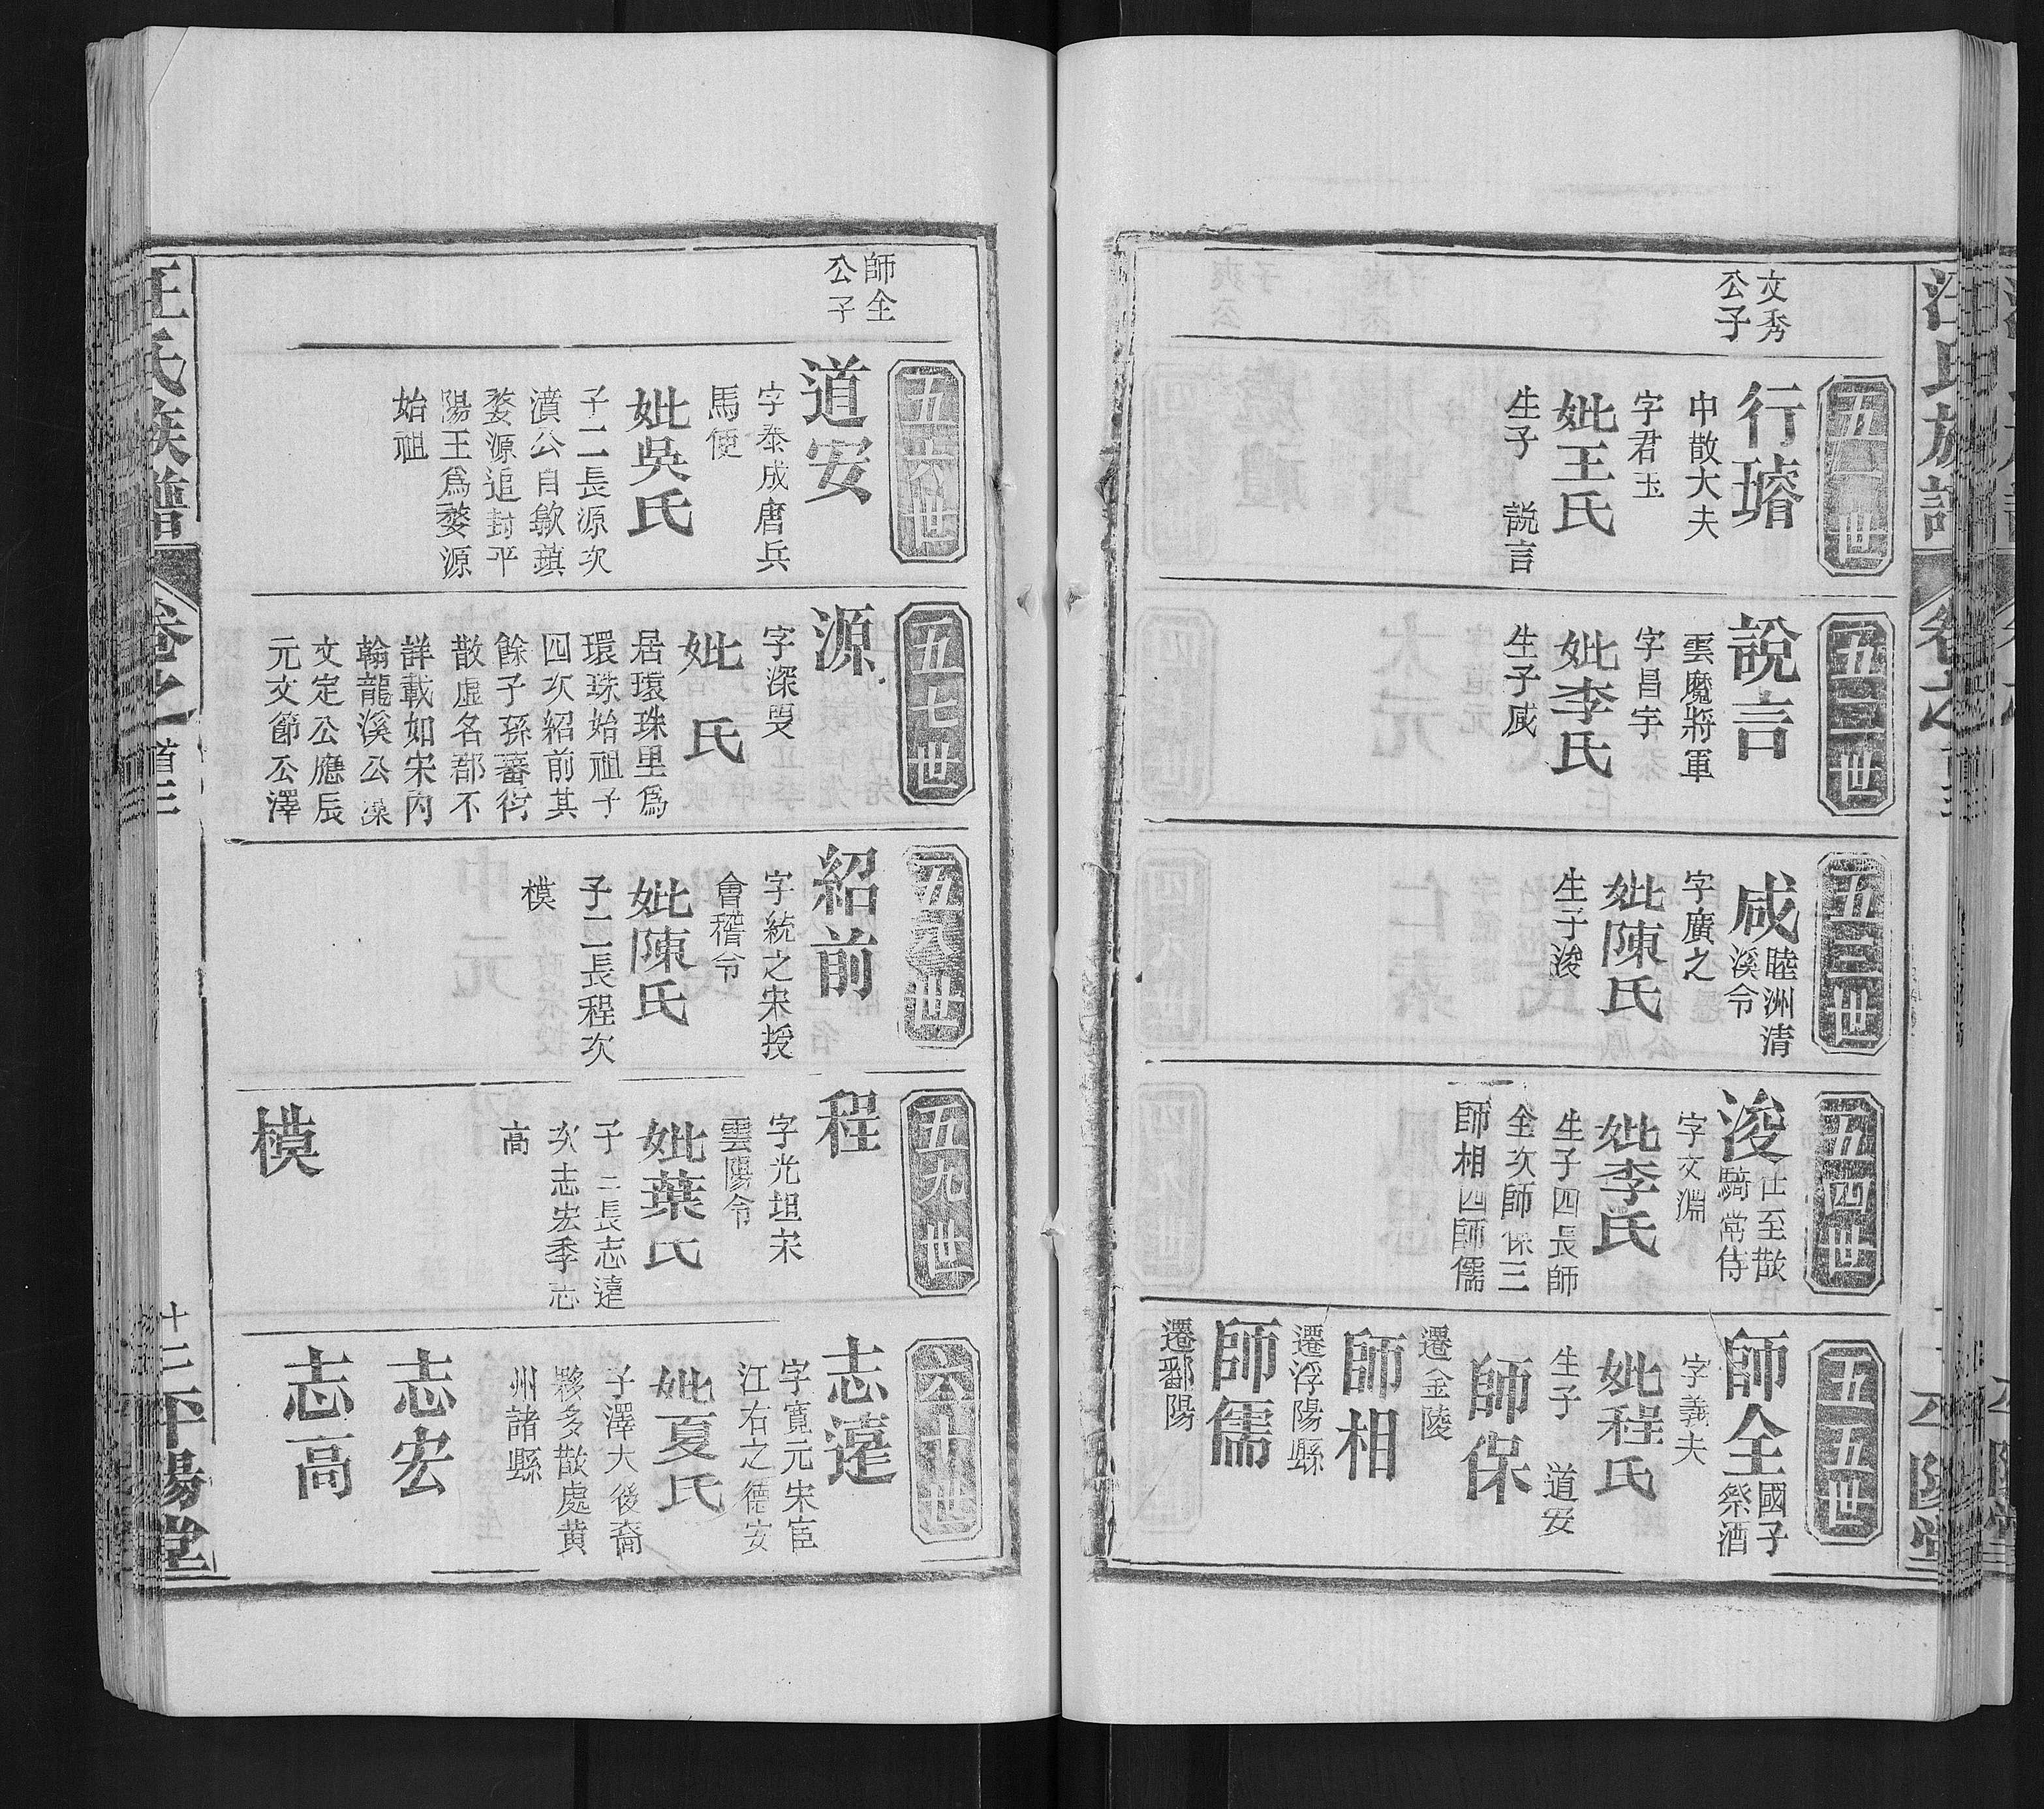 汪氏族譜
卷之
文秀
公子
五一世
行璿
中散大夫
字君玉
妣王氏
生子 説言
五二世
說言
雲麾將軍
字昌宇
妣李氏
生子咸
五三世
咸
睦洲清
溪令
字廣之
妣陳氏
生子浚
五四世
浚
仕至散
騎常侍
字文淵
妣李氏
生子四長師
全次師保三
師相四師儒
五五世
師全
國子
祭酒
字義夫
妣程氏
生子 道安
師保
遷金陵
師相
遷浮陽縣
師儒
遷鄱陽
師全
公子
五六世
道安
字泰成唐兵
馬使
妣吳氏
子二長源次
濆公自歙鎮
婺源追封平
陽王爲婺源
始祖
五七世
源
字深旻
妣 氏
居環珠里爲
環珠始祖子
四次紹前其
餘子孫蕃衍
散處名郡不
詳載如宋內
翰龍溪公藻
文定公應辰
元文節公澤
五八世
紹前
字統之宋授
會稽令
妣陳氏
子二長程次
模
五九世
程
字光坦宋
雲陽令
妣葉氏
子三長志遠
次志宏季志
高
模
六十世
志遠
字寬元宋宦
江右之德安
妣夏氏
子澤大後裔
夥多散處黄
州諸縣
志宏
志高
汪氏族譜
卷之首三
十二
平陽堂